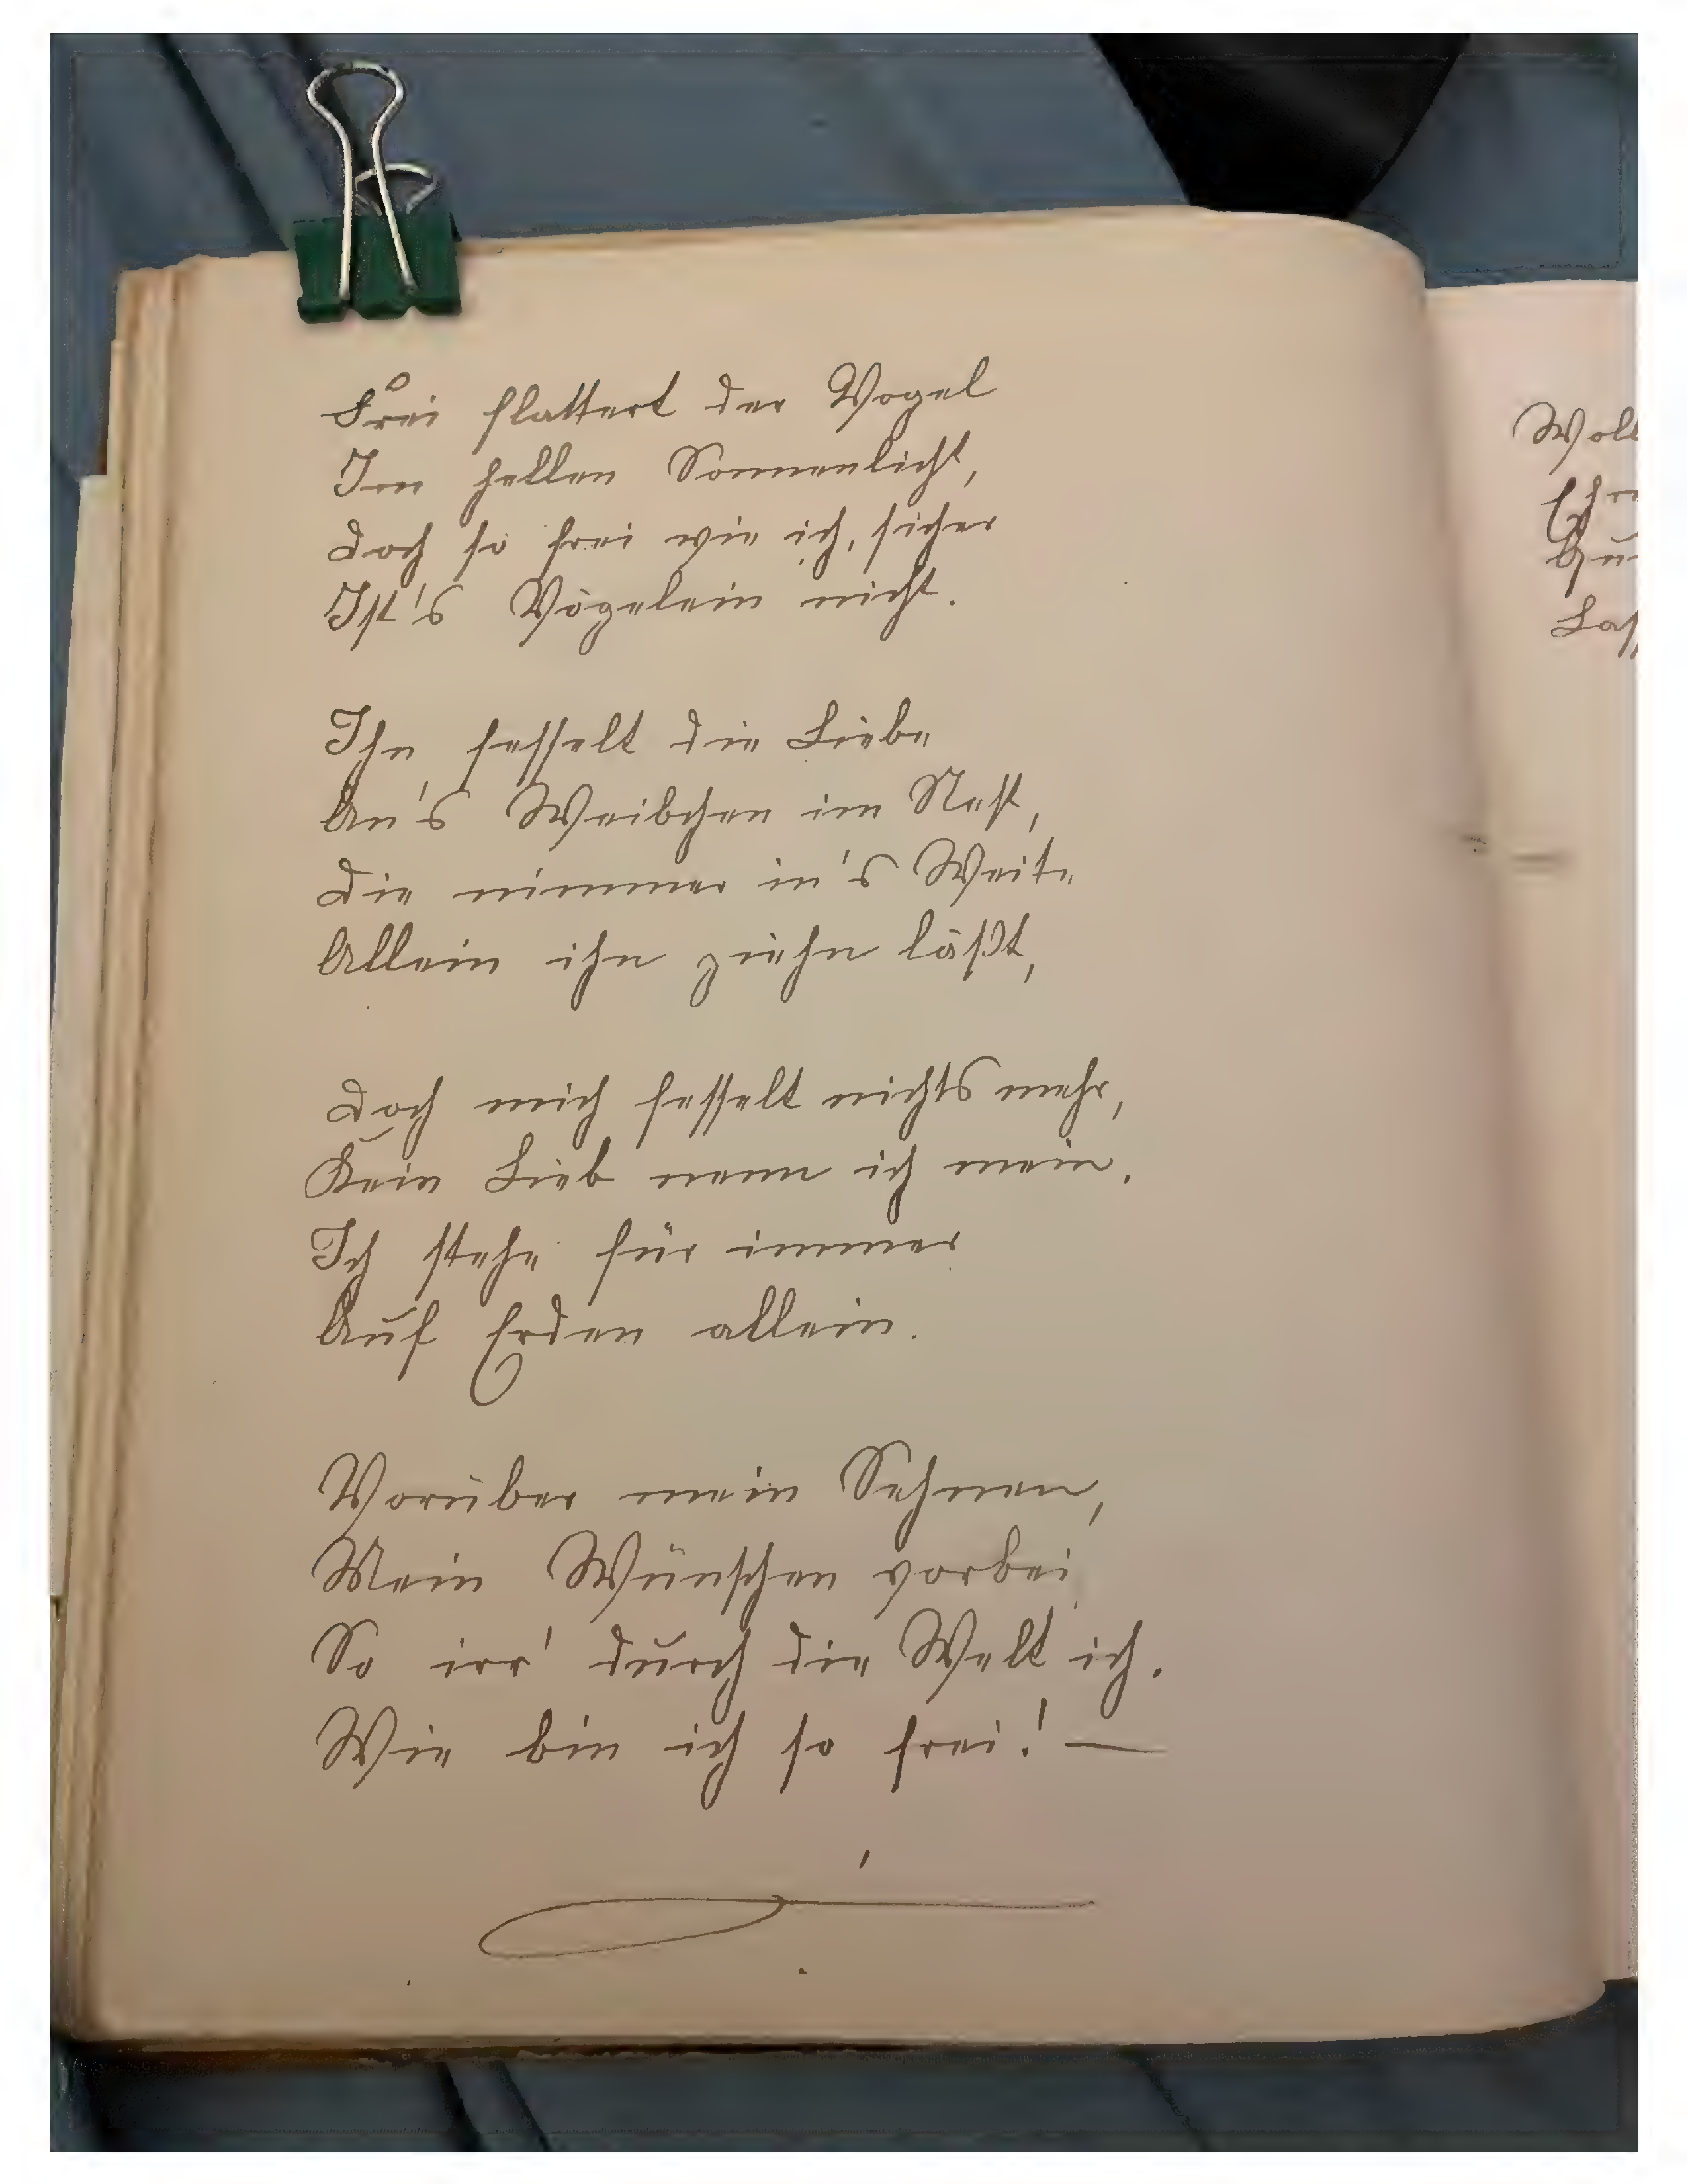 Frei flattert der Vogel
Im hellen Sonnenlicht,
Doch so frei wie ich, sicher
Ist's Vögelein nicht.
Ihn fesselt die Liebe
An's Weibchen im Nest,
Die nimmer in's Weite
Allein ihn ziehn läßt,
Doch mich fesselt nichts mehr,
Kein Lieb nenn ich mein.
Ich stehe für immer
Auf Erden allein.
Vorüber mein Sehnen,
Mein Wünschen vorbei,
So irr' durch die Welt ich.
Wie bin ich so frei! —